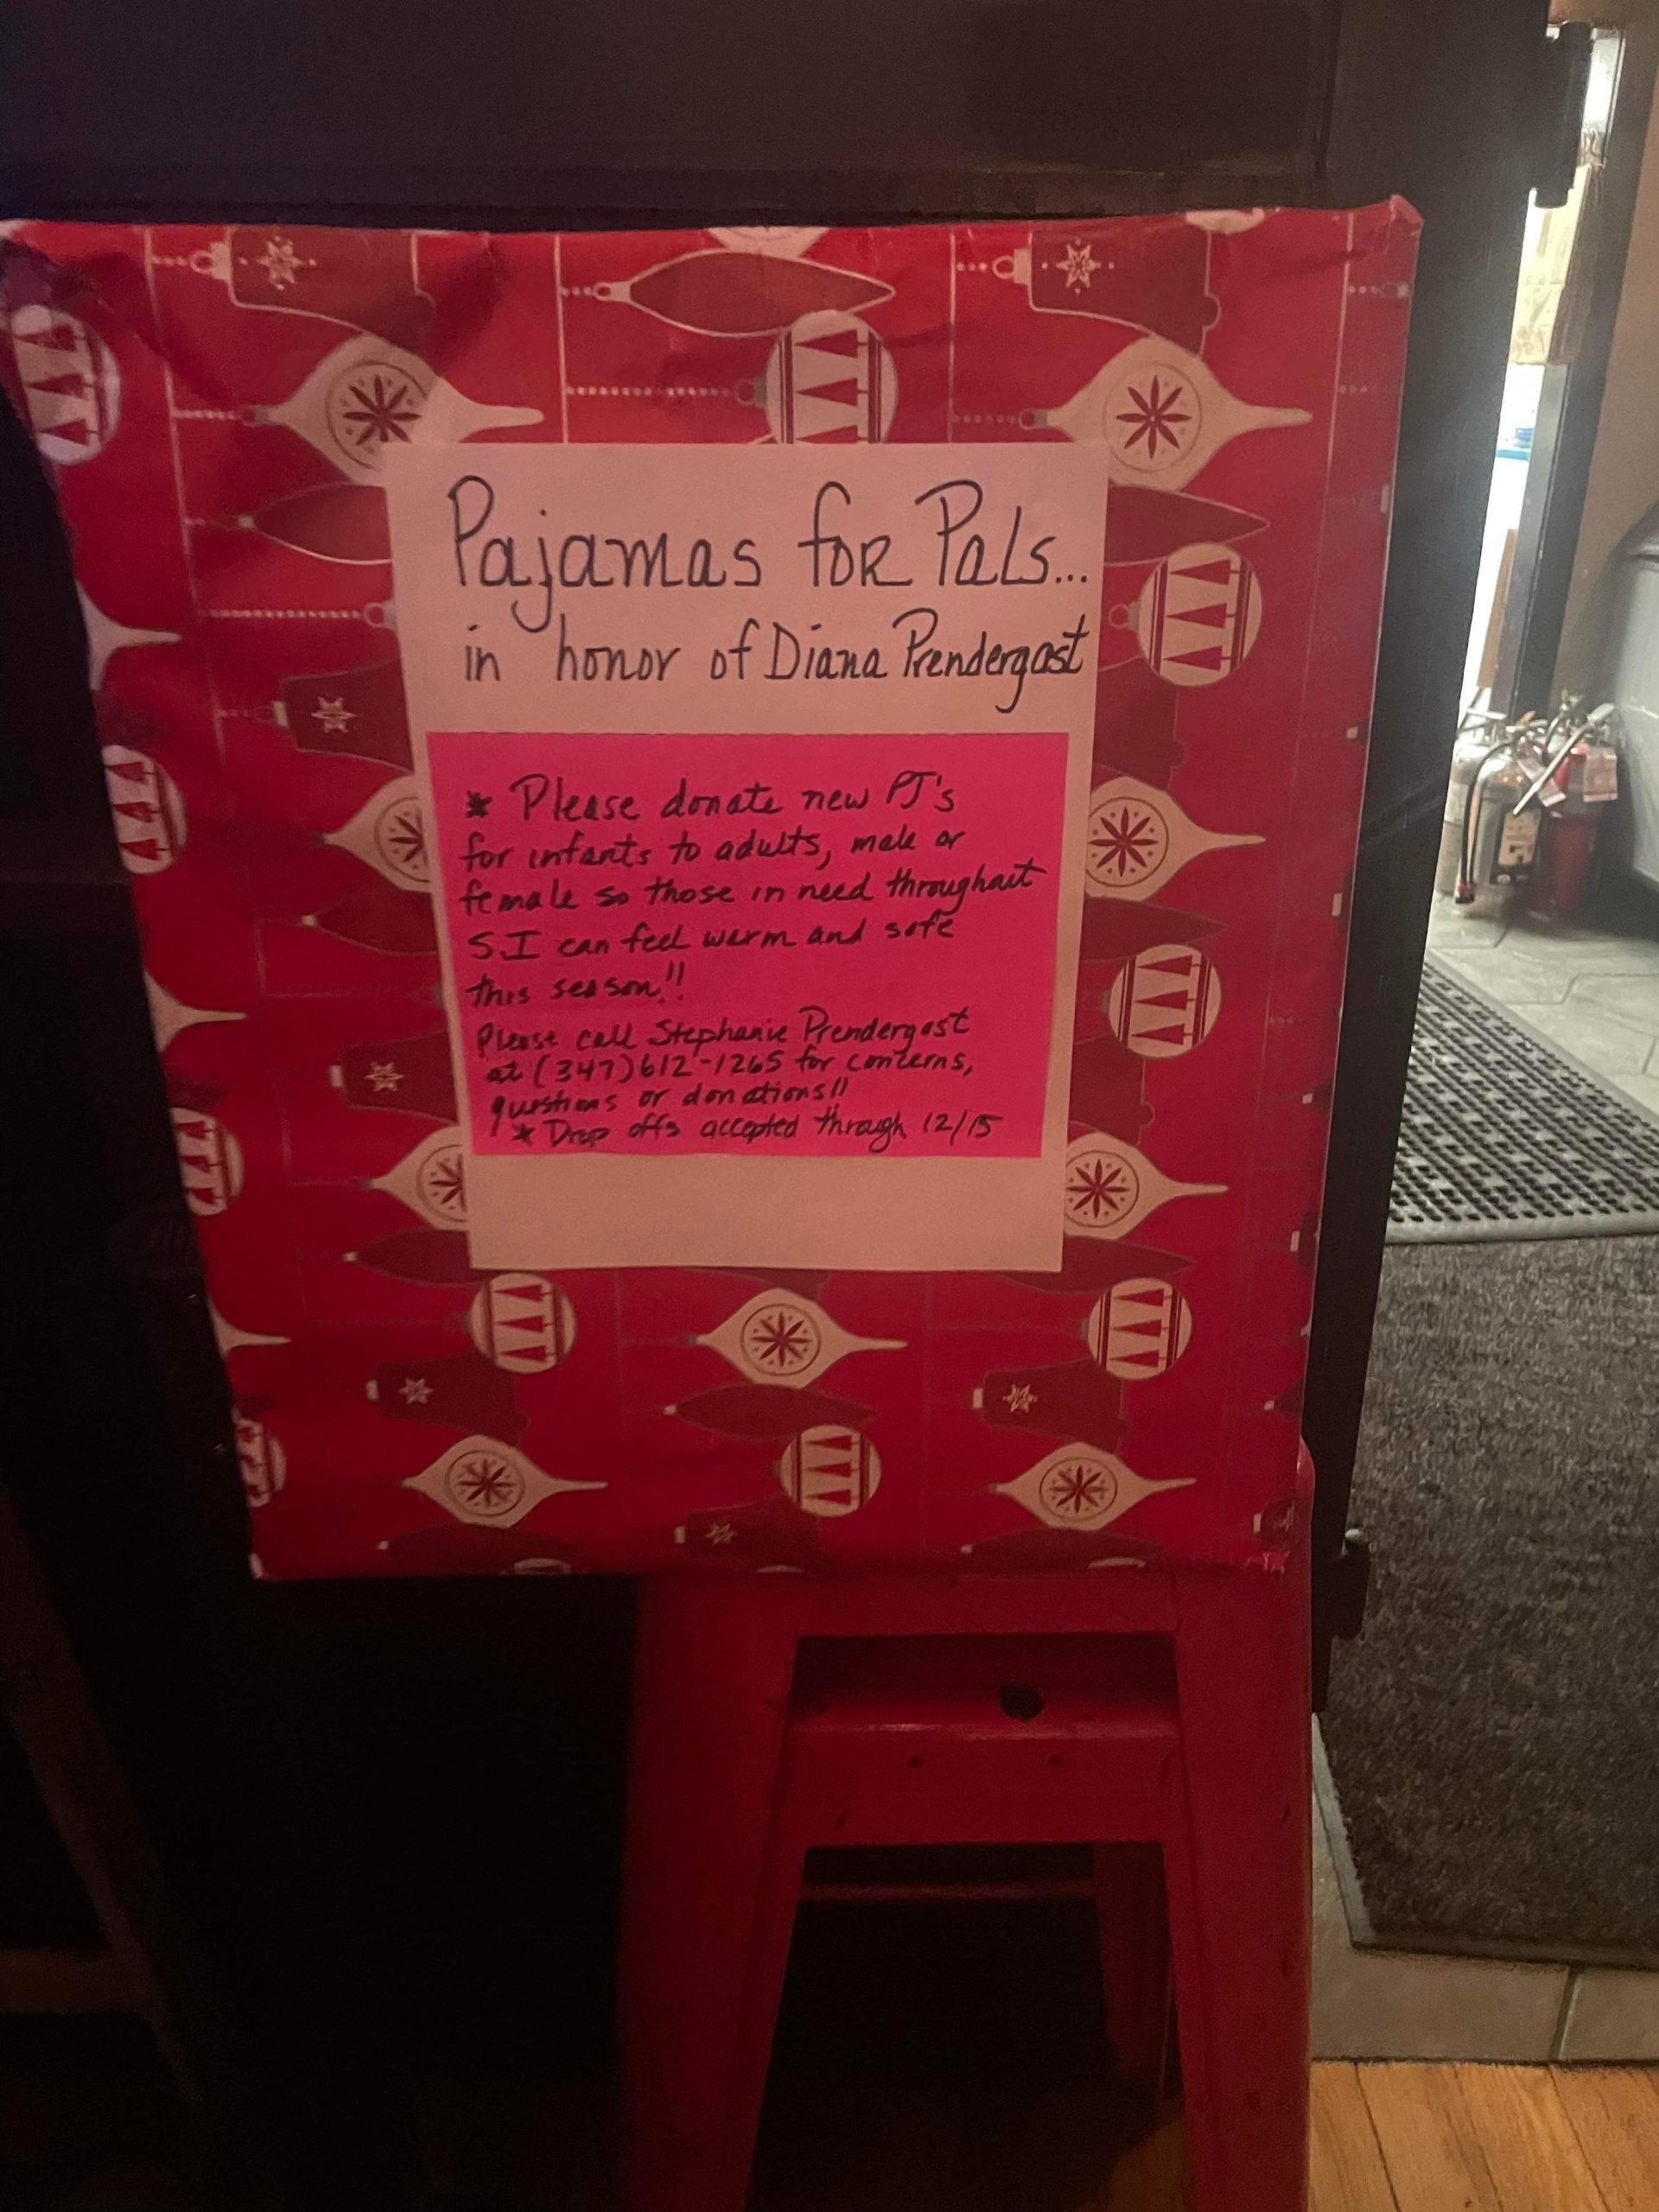 Pajamas for Pals...
in honor of Diana Prendergast
* Please donate new PJ's
for infants to adults, male or
female so those in need throughout
S.I can feel warm and safe
this season!!
Please call Stephanie Prendergast
at (347)612-1265 for concerns,
questions or donations!!
* Drop offs accepted through 12/15